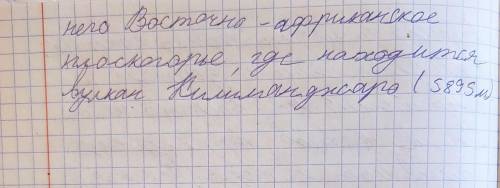 него Восточно-африканское
плоскогорье, где находится
вулкан Килиманджаро (5895 м)